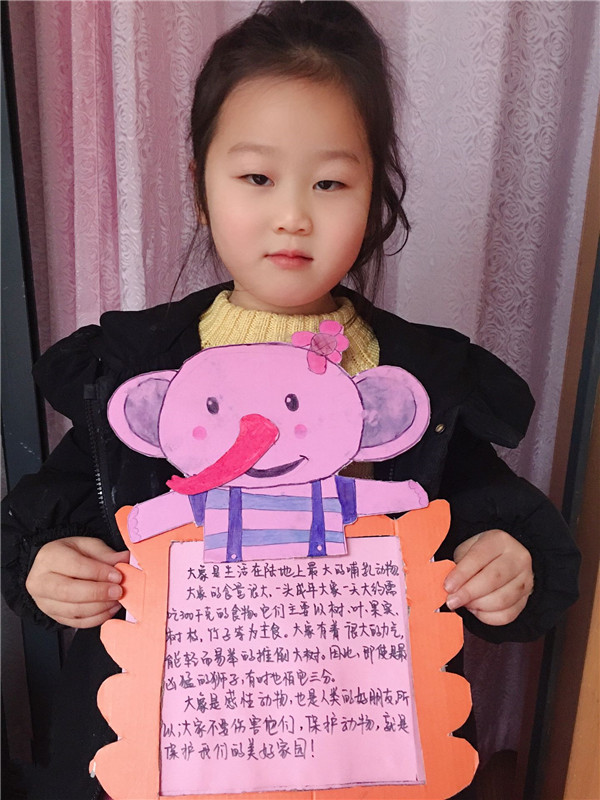 大象是生活在陆地上最大的哺乳动物
大象的食量很大,一头成年大象一天大约需
吃300千克的食物。它们主要以树、叶、果实、
树枝,竹子等为主食。大象有着很大的力气,
能轻而易举的推倒大树。因此,即使是最
凶猛的狮子,有时也怕它三分。
大象是感性动物,也是人类的好朋友所
以大家不要伤害它们,保护动物,就是
保护我们的美好家园!